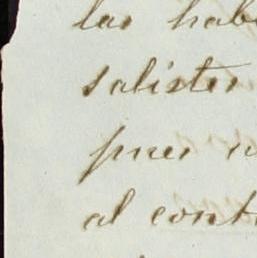 las habe
salistes
pues n
al cont